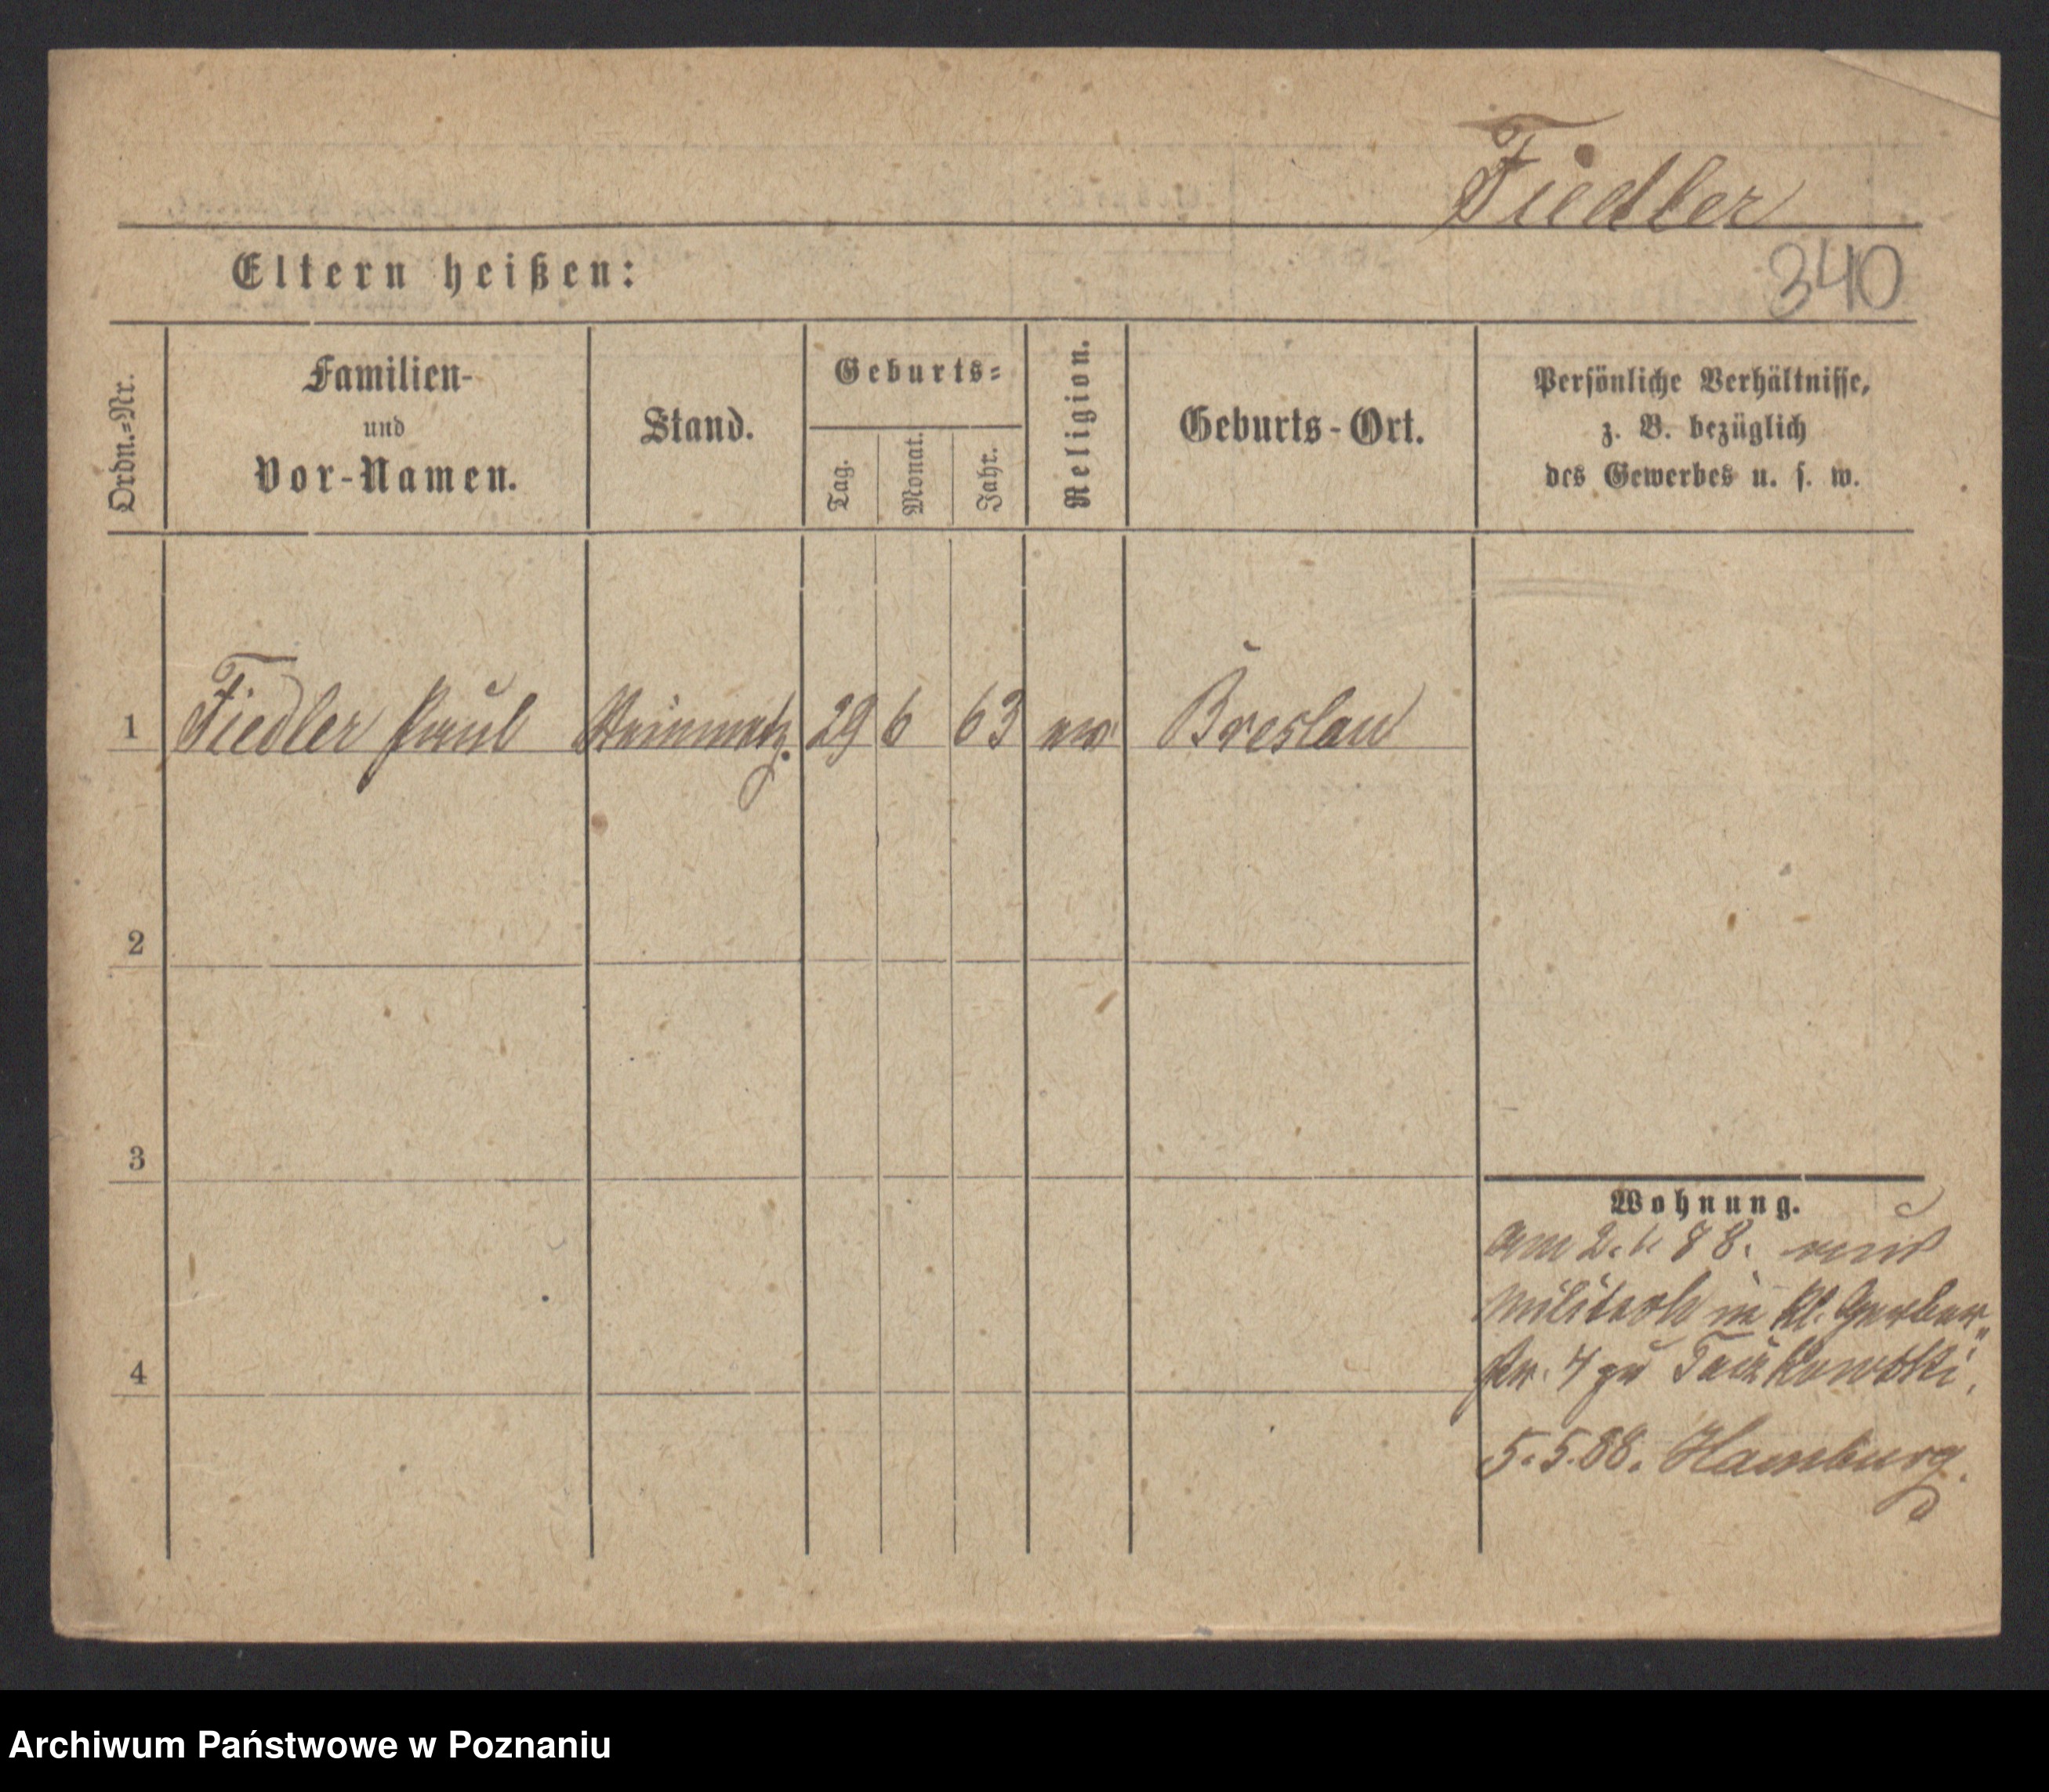 Fiedler
Eltern heißen:
340
Ordn.=Nr.
Familien-
und
Vor-Namen.
Stand.
Geburts=
Tag.
Monat.
Jahr.
Religion.
Geburts-Ort.
Persönliche Verhältnisse,
z. B. bezüglich
des Gewerbes u. s. w.
1 Fiedler Paul Steinmetz. 29 6 63 ev Breslau
2
3
4
Wohnung.
am 2. 88. aus
in Kl. Gerber„
str. 4 zu
5.5.88. Hamburg.
Archiwum Państwowe w Poznaniu